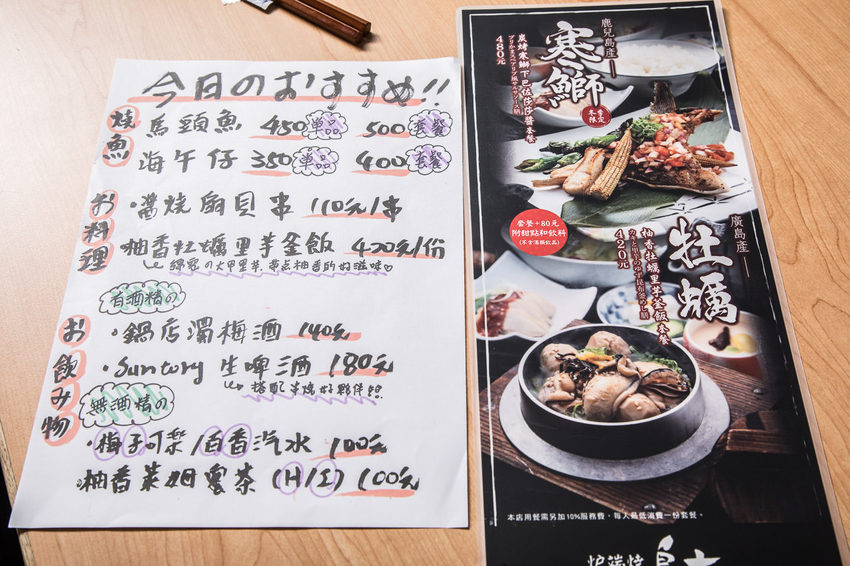 今日のおすすめ!!
焼魚
馬頭魚 450 單品 500 套餐
海午仔 350 單品 400 套餐
お料理
・醬燒扇貝串 110元/串
柚香牡蠣里芋釜飯 420元/份
綿密の大甲里芋,帶點柚香的好滋味♡
有酒精の
お飲み物
・鍋店濁梅酒 140元
・Suntory 生啤酒 180元
搭配串燒好夥伴!!
無酒精の
・梅子可樂/百香汽水 100元
・柚香萊姆蜜茶 (H/I) 100元
鹿兒島產
寒鰤
冬季限定
炭烤寒鰤下巴佐莎莎醬套餐
480元
套餐+80元
附甜點和飲料
(不含酒類飲品)
廣島產
牡蠣
柚香牡蠣里芋釜飯套餐
420元
本店用餐需另加10%服務費,每人最低消費一份套餐。
炉端燒